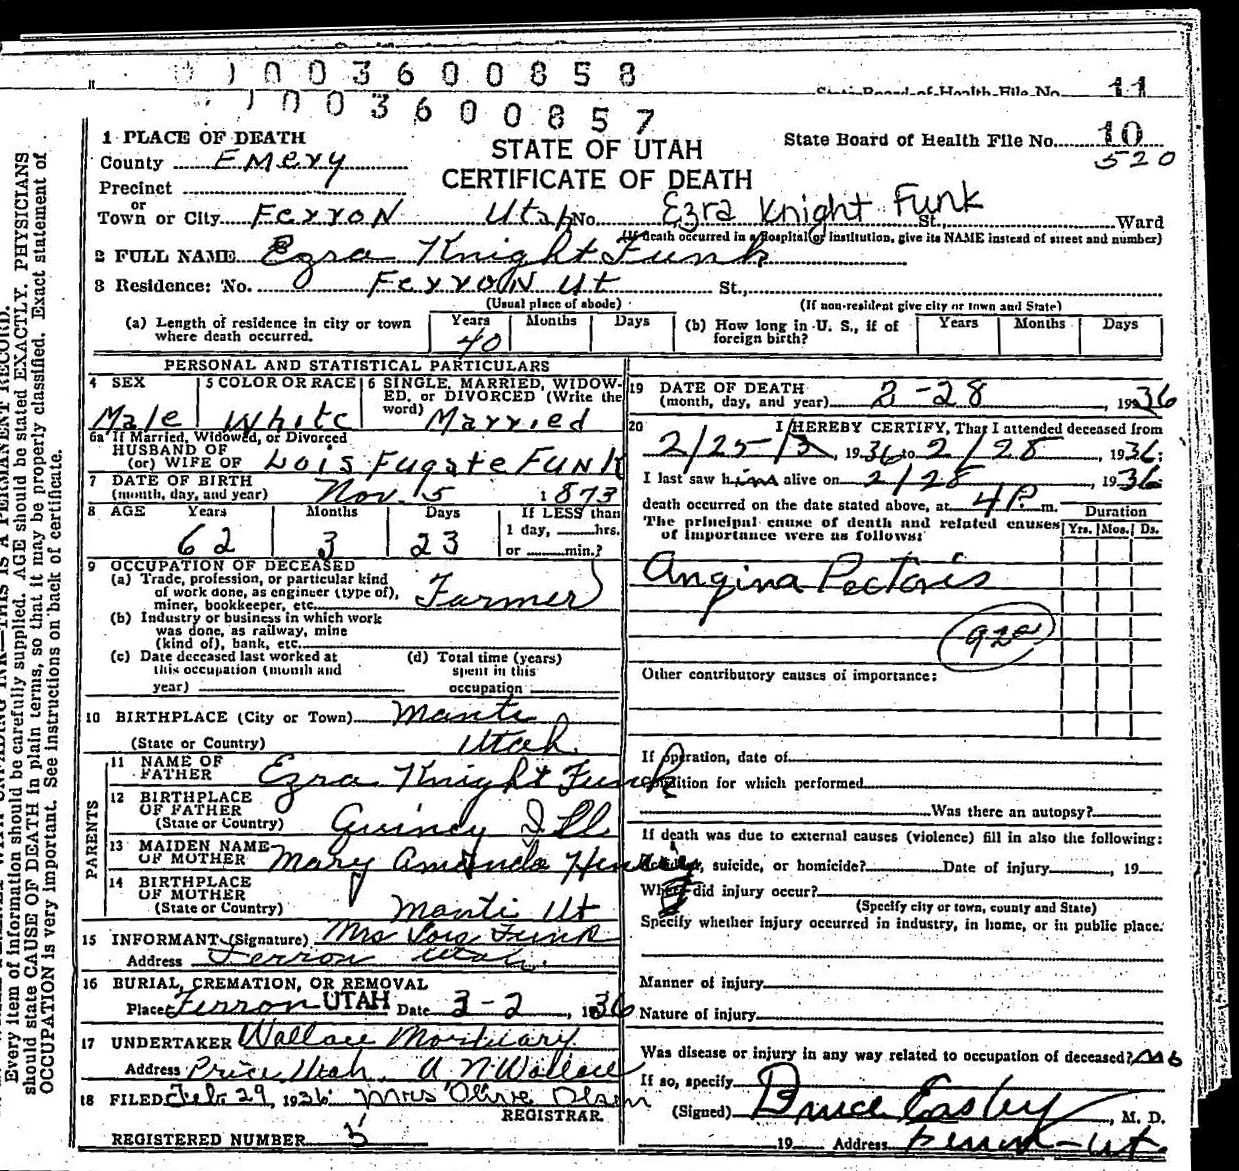 1003600858
State Board of Health File No. 11
1003600857
1 PLACE OF DEATH
STATE OF UTAH
CERTIFICATE OF DEATH
State Board of Health File No. 10
520
County Emery
Precinct
or
Town or City Ferron Utah No. Ezra Knight Funk St., Ward
(If death occurred in a hospital or institution, give its NAME instead of street and number)
2 FULL NAME Ezra Knight Funk
3 Residence: No. Ferron Ut St.,
(Usual place of abode) (If non-resident give city or town and State)
(a) Length of residence in city or town where death occurred. Years 40 Months Days
(b) How long in U. S., if of foreign birth? Years Months Days
PERSONAL AND STATISTICAL PARTICULARS
4 SEX Male
5 COLOR OR RACE White
6 SINGLE, MARRIED, WIDOWED, or DIVORCED (Write the word) Married
6a If Married, Widowed, or Divorced
HUSBAND OF
(or) WIFE OF Lois Fugate Funk
7 DATE OF BIRTH
(month, day, and year) Nov 5 1873
8 AGE Years 62 Months 3 Days 23
If LESS than
1 day, hrs.
or min.?
9 OCCUPATION OF DECEASED
(a) Trade, profession, or particular kind
of work done, as engineer (type of),
miner, bookkeeper, etc. Farmer
(b) Industry or business in which work
was done, as railway, mine
(kind of), bank, etc.
(c) Date deceased last worked at
this occupation (month and
year)
(d) Total time (years)
spent in this
occupation
10 BIRTHPLACE (City or Town) Manti
(State or Country) Utah
PARENTS
11 NAME OF
FATHER Ezra Knight Funk
12 BIRTHPLACE
OF FATHER
(State or Country) Quincy Ill
13 MAIDEN NAME
OF MOTHER Mary Amanda
14 BIRTHPLACE
OF MOTHER
(State or Country) Manti Ut
15 INFORMANT (Signature) Mrs Lois Funk
Address Ferron Utah.
16 BURIAL, CREMATION, OR REMOVAL
Place Ferron UTAH Date 3-2, 1936
17 UNDERTAKER Wallace Mortuary
Address Price Utah. A N Wallace
18 FILED Feb. 29, 1936 Mrs Olive Olsen
REGISTRAR.
REGISTERED NUMBER 5
19 DATE OF DEATH
(month, day, and year) 2-28, 1936
20 I HEREBY CERTIFY, That I attended deceased from
2/25, 1936 to 2/28, 1936;
I last saw him alive on 2/28, 1936
death occurred on the date stated above, at 4 P. m.
The principal cause of death and related causes
of importance were as follows:
Duration
Yrs. Mos. Ds.
Angina Pectoris
Other contributory causes of importance:
If operation, date of
Condition for which performed
Was there an autopsy?
If death was due to external causes (violence) fill in also the following:
suicide, or homicide? Date of injury, 19
Where did injury occur?
(Specify city or town, county and State)
Specify whether injury occurred in industry, in home, or in public place.
Manner of injury
Nature of injury
Was disease or injury in any way related to occupation of deceased? no
If so, specify
(Signed) Bruce Easley, M. D.
19 Address Ferron - Ut.
Every item of information should be carefully supplied. AGE should be stated EXACTLY. PHYSICIANS
should state CAUSE OF DEATH in plain terms, so that it may be properly classified. Exact statement of
OCCUPATION is very important. See instructions on back of certificate.